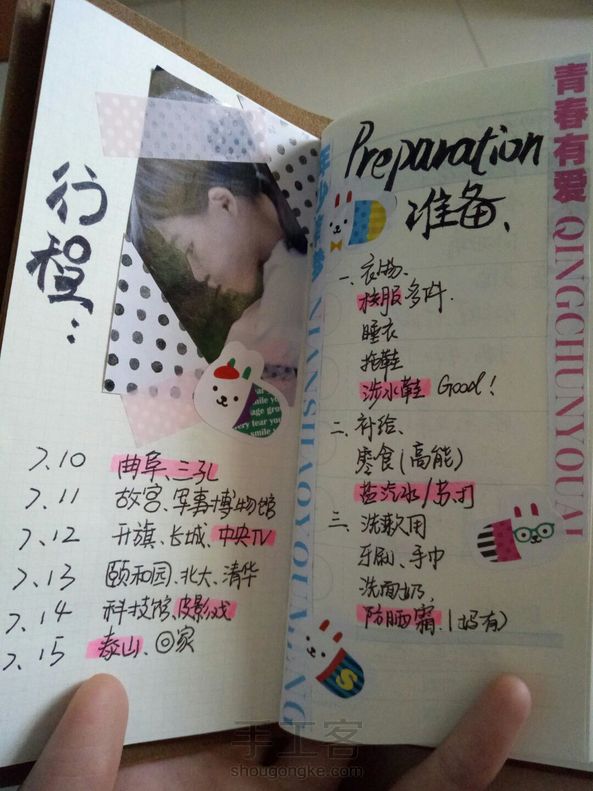 行程：
7.10 曲阜、三孔
7.11 故宫、军事博物馆
7.12 升旗、长城、中央TV
7.13 颐和园、北大、清华
7.14 科技馆、皮影戏
7.15 泰山、回家
Preparation
准备、
一、衣物、
校服多件.
睡衣
拖鞋
涉水鞋 Good!
二、补给、
零食(高能)
盐汽水/苏打
三、洗漱用
牙刷、手巾
洗面奶,
防晒霜.(妈有)
青春有爱 QINGCHUNYOUAI
NIANSHAOYOUMENG
smile you
S
手工客
shougongke.com